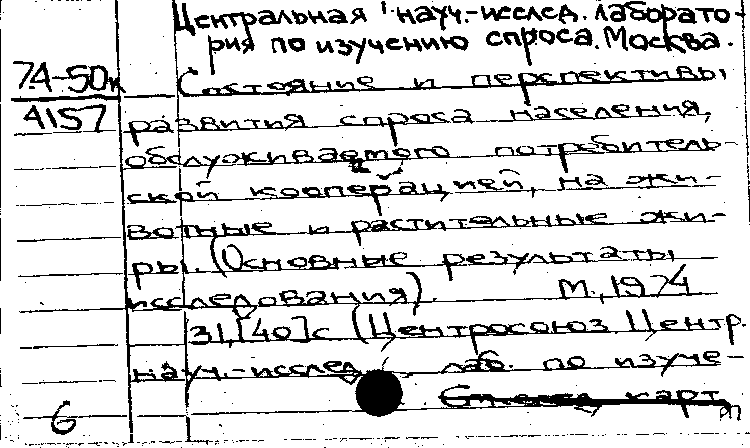 Центральная науч.-исслед. лаборато-
рия по изучению спроса. Москва.
74-50к Состояние и перспективы
4157 развития спроса населения,
обслуживаемого потребитель-
ской кооперацией, на жи-
вотные и растительные жи-
ры. (Основные результаты
исследования). М., 1974
31, [40] с (Центросоюз Центр.
науч.-исслед. лаб. по изуче-
карт
6 РП